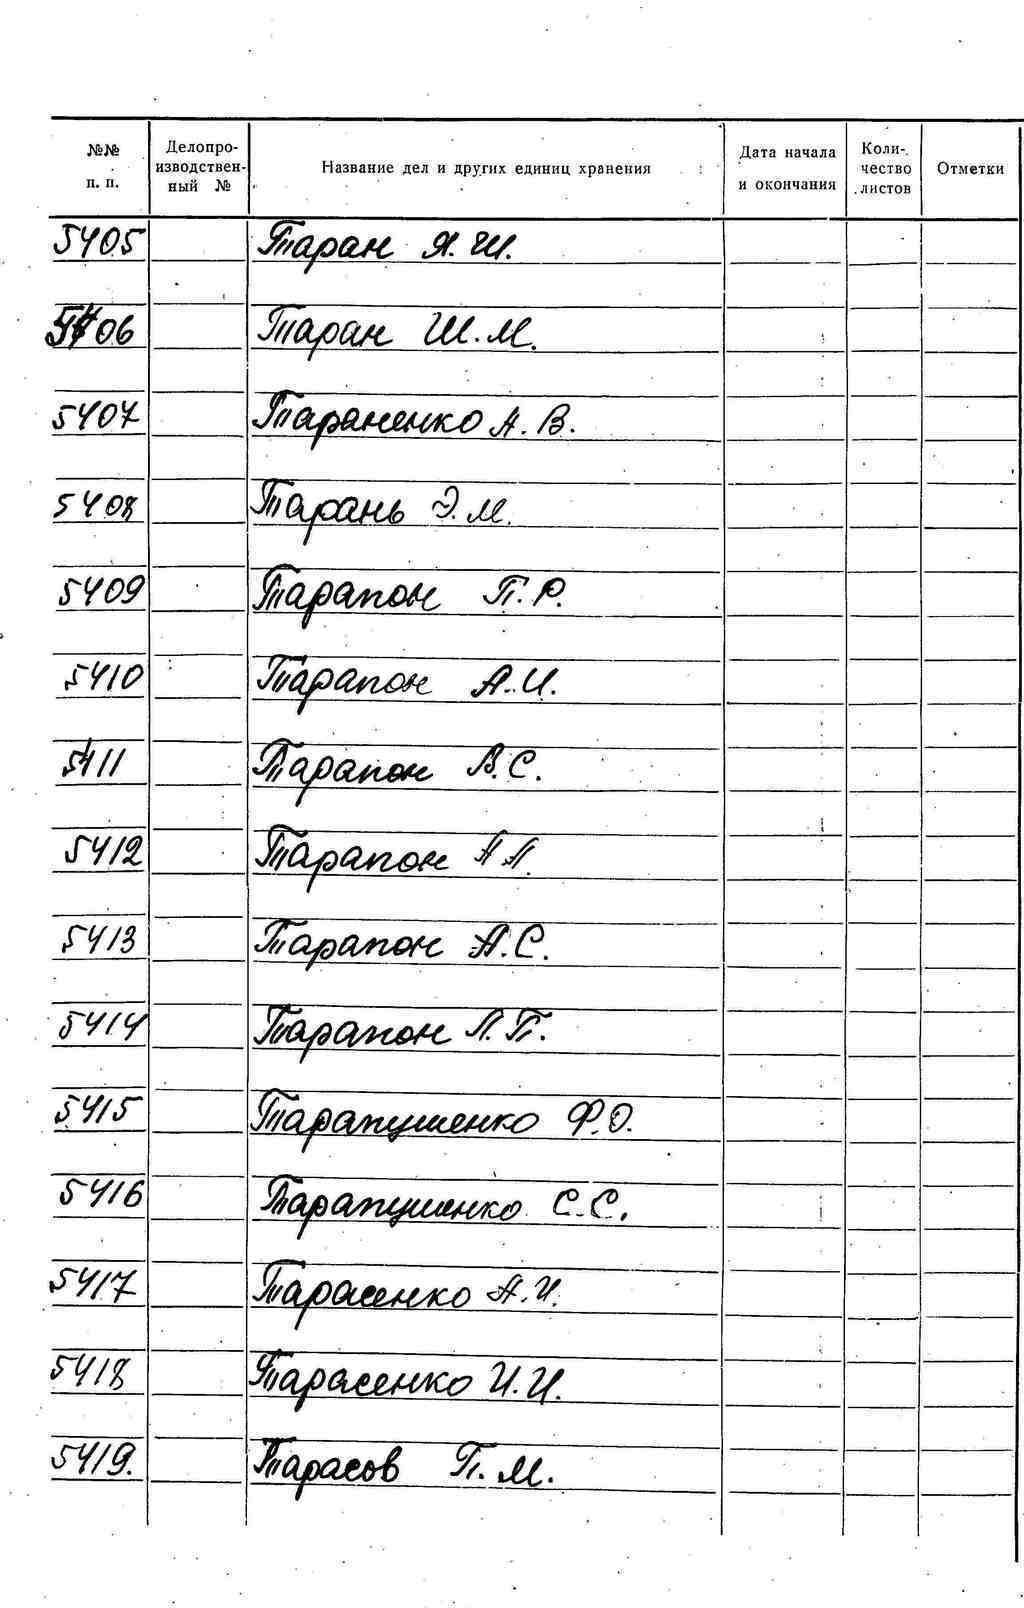 №№ п. п. Делопро-изводствен-ный № Название дел и других единиц хранения Дата начала и окончания Коли-чество листов Отметки
5405 Таран Я. Ш.
5406 Таран Ш. М.
5407 Тараненко А. В.
5408 Тарань Э. М.
5409 Тарапон П. Р.
5410 Тарапон А. И.
5411 Тарапон В. С.
5412 Тарапон А Л.
5413 Тарапон А. С.
5414 Тарапон Л. П.
5415 Тарапушенко Ф. О.
5416 Тарапушенко С. С.
5417 Тарасенко А. И.
5418 Тарасенко И. И.
5419. Тарасов П. М.